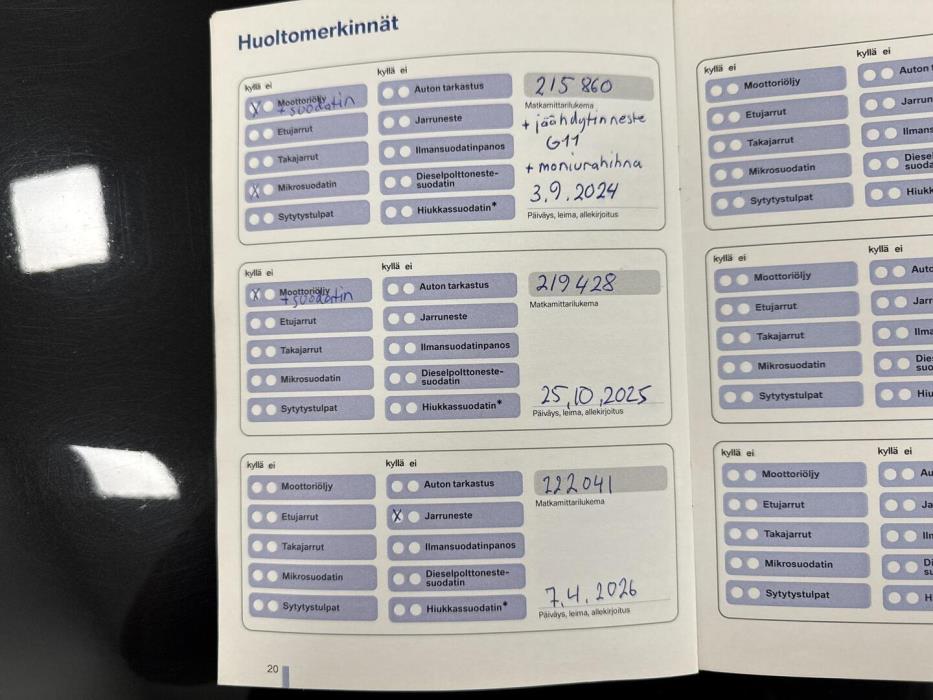 Huoltomerkinnät
kyllä ei
kyllä ei
X Moottoriöljy
+ suodatin
Etujarrut
Takajarrut
X Mikrosuodatin
Sytytystulpat
Auton tarkastus
Jarruneste
Ilmansuodatinpanos
Dieselpolttoneste-
suodatin
Hiukkassuodatin*
215 860
Matkamittarilukema
+ jäähdytinneste
G11
+ moniurahihna
3.9.2024
Päiväys, leima, allekirjoitus
kyllä ei
kyllä ei
X Moottoriöljy
+ suodatin
Etujarrut
Takajarrut
Mikrosuodatin
Sytytystulpat
Auton tarkastus
Jarruneste
Ilmansuodatinpanos
Dieselpolttoneste-
suodatin
Hiukkassuodatin*
219 428
Matkamittarilukema
25.10.2025
Päiväys, leima, allekirjoitus
kyllä ei
kyllä ei
Moottoriöljy
Etujarrut
Takajarrut
Mikrosuodatin
Sytytystulpat
Auton tarkastus
X Jarruneste
Ilmansuodatinpanos
Dieselpolttoneste-
suodatin
Hiukkassuodatin*
222 041
Matkamittarilukema
7.4.2026
Päiväys, leima, allekirjoitus
20
kyllä ei
kyllä ei
Moottoriöljy
Etujarrut
Takajarrut
Mikrosuodatin
Sytytystulpat
Auton
Jarrun
Ilmans
Diesel
suoda
Hiukk
kyllä ei
kyllä ei
Moottoriöljy
Etujarrut
Takajarrut
Mikrosuodatin
Sytytystulpat
Auto
Jarr
Ilma
Dies
suo
Hiu
kyllä ei
kyllä ei
Moottoriöljy
Etujarrut
Takajarrut
Mikrosuodatin
Sytytystulpat
Au
Ja
Iln
Di
su
H